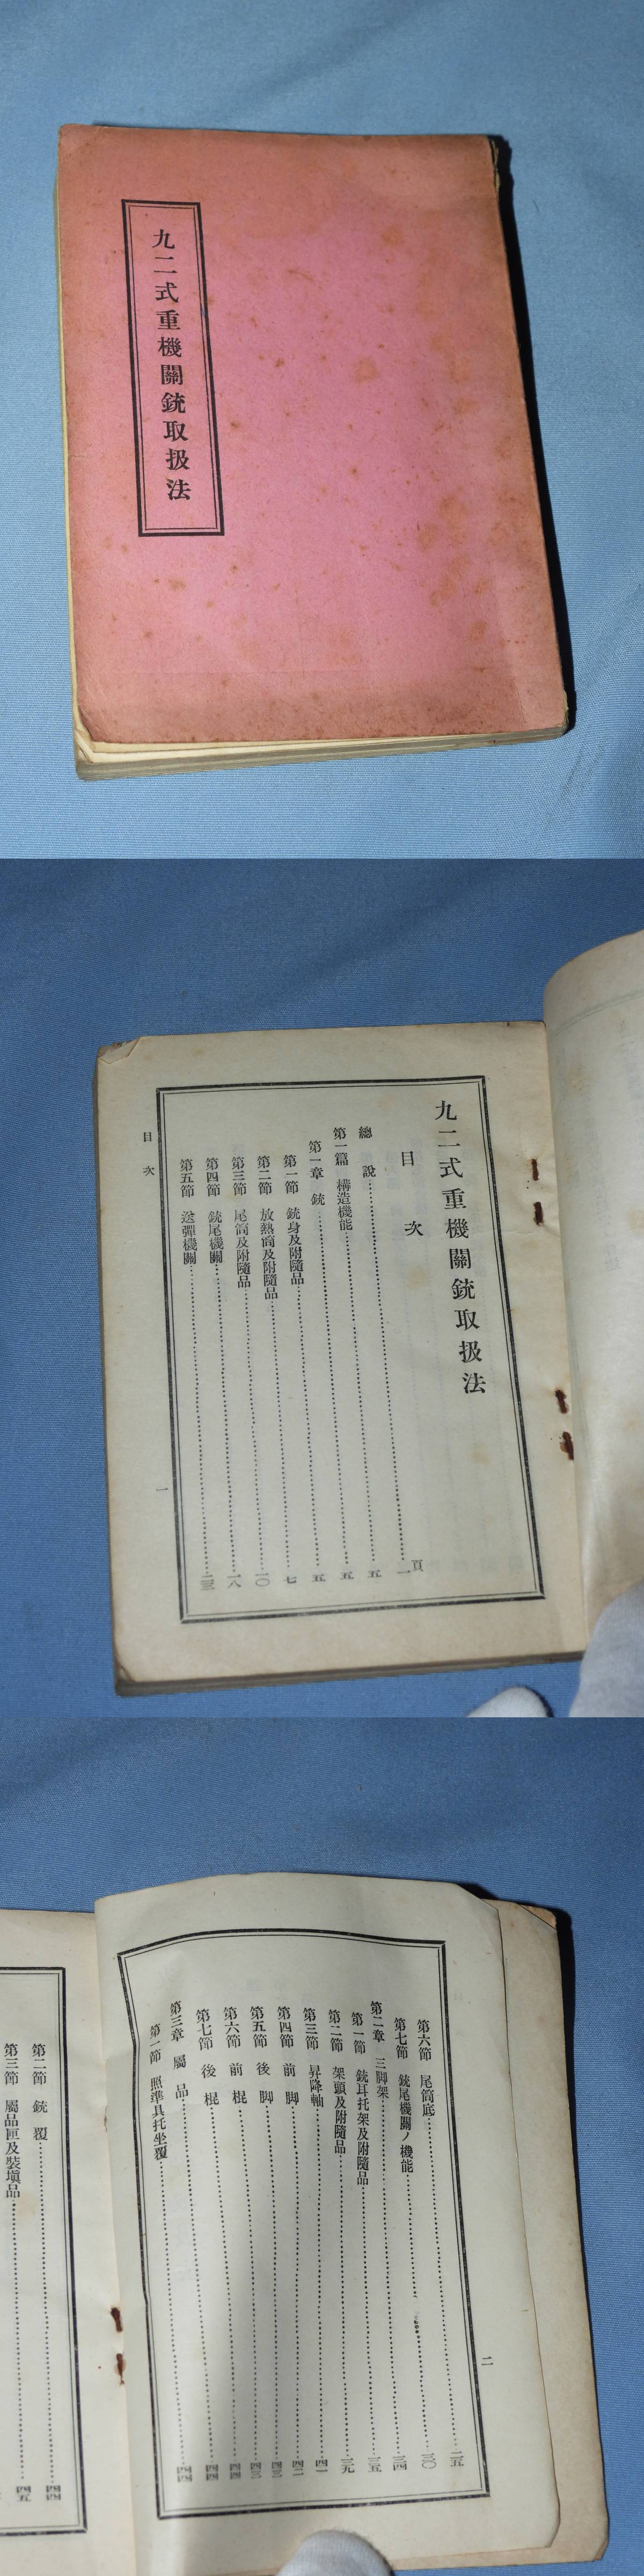 九二式重機關銃取扱法
九二式重機關銃取扱法
目次
頁
總說……一
第一篇 構造機能……五
第一章 銃……五
第一節 銃身及附隨品……五
第二節 放熱筒及附隨品……七
第三節 尾筒及附隨品……一〇
第四節 銃尾機關……一八
第五節 送彈機關……二三
目次
一
第六節 尾筒底……二五
第七節 銃尾機關ノ機能……三〇
第二章 三脚架……三四
第一節 銃耳托架及附隨品……三五
第二節 架頭及附隨品……三九
第三節 昇降軸……四一
第四節 前脚……四二
第五節 後脚……四三
第六節 前棍……四三
第七節 後棍……四四
第三章 屬品……四四
第一節 照準具托坐覆……四四
二
第二節 銃覆……四四
第三節 屬品匣及裝塡品……四五